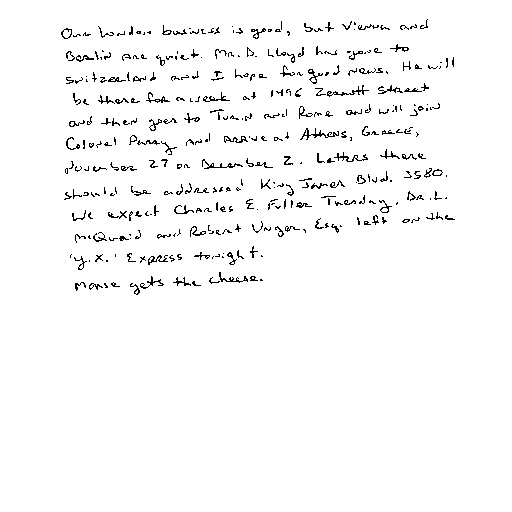 Our London business is good, but Vienna and
Berlin are quiet. Mr. D. Lloyd has gone to
Switzerland and I hope for good news. He will
be there for a week at 1496 Zermott Street
and then goes to Turin and Rome and will join
Colonel Parry and arrive at Athens, Greece,
November 27 or December 2. Letters there
should be addressed King James Blvd. 3580.
We expect Charles E. Fuller Tuesday. Dr. L.
McQuaid and Robert Unger, Esq. left on the
'Y.X.' Express tonight.
Mouse gets the cheese.